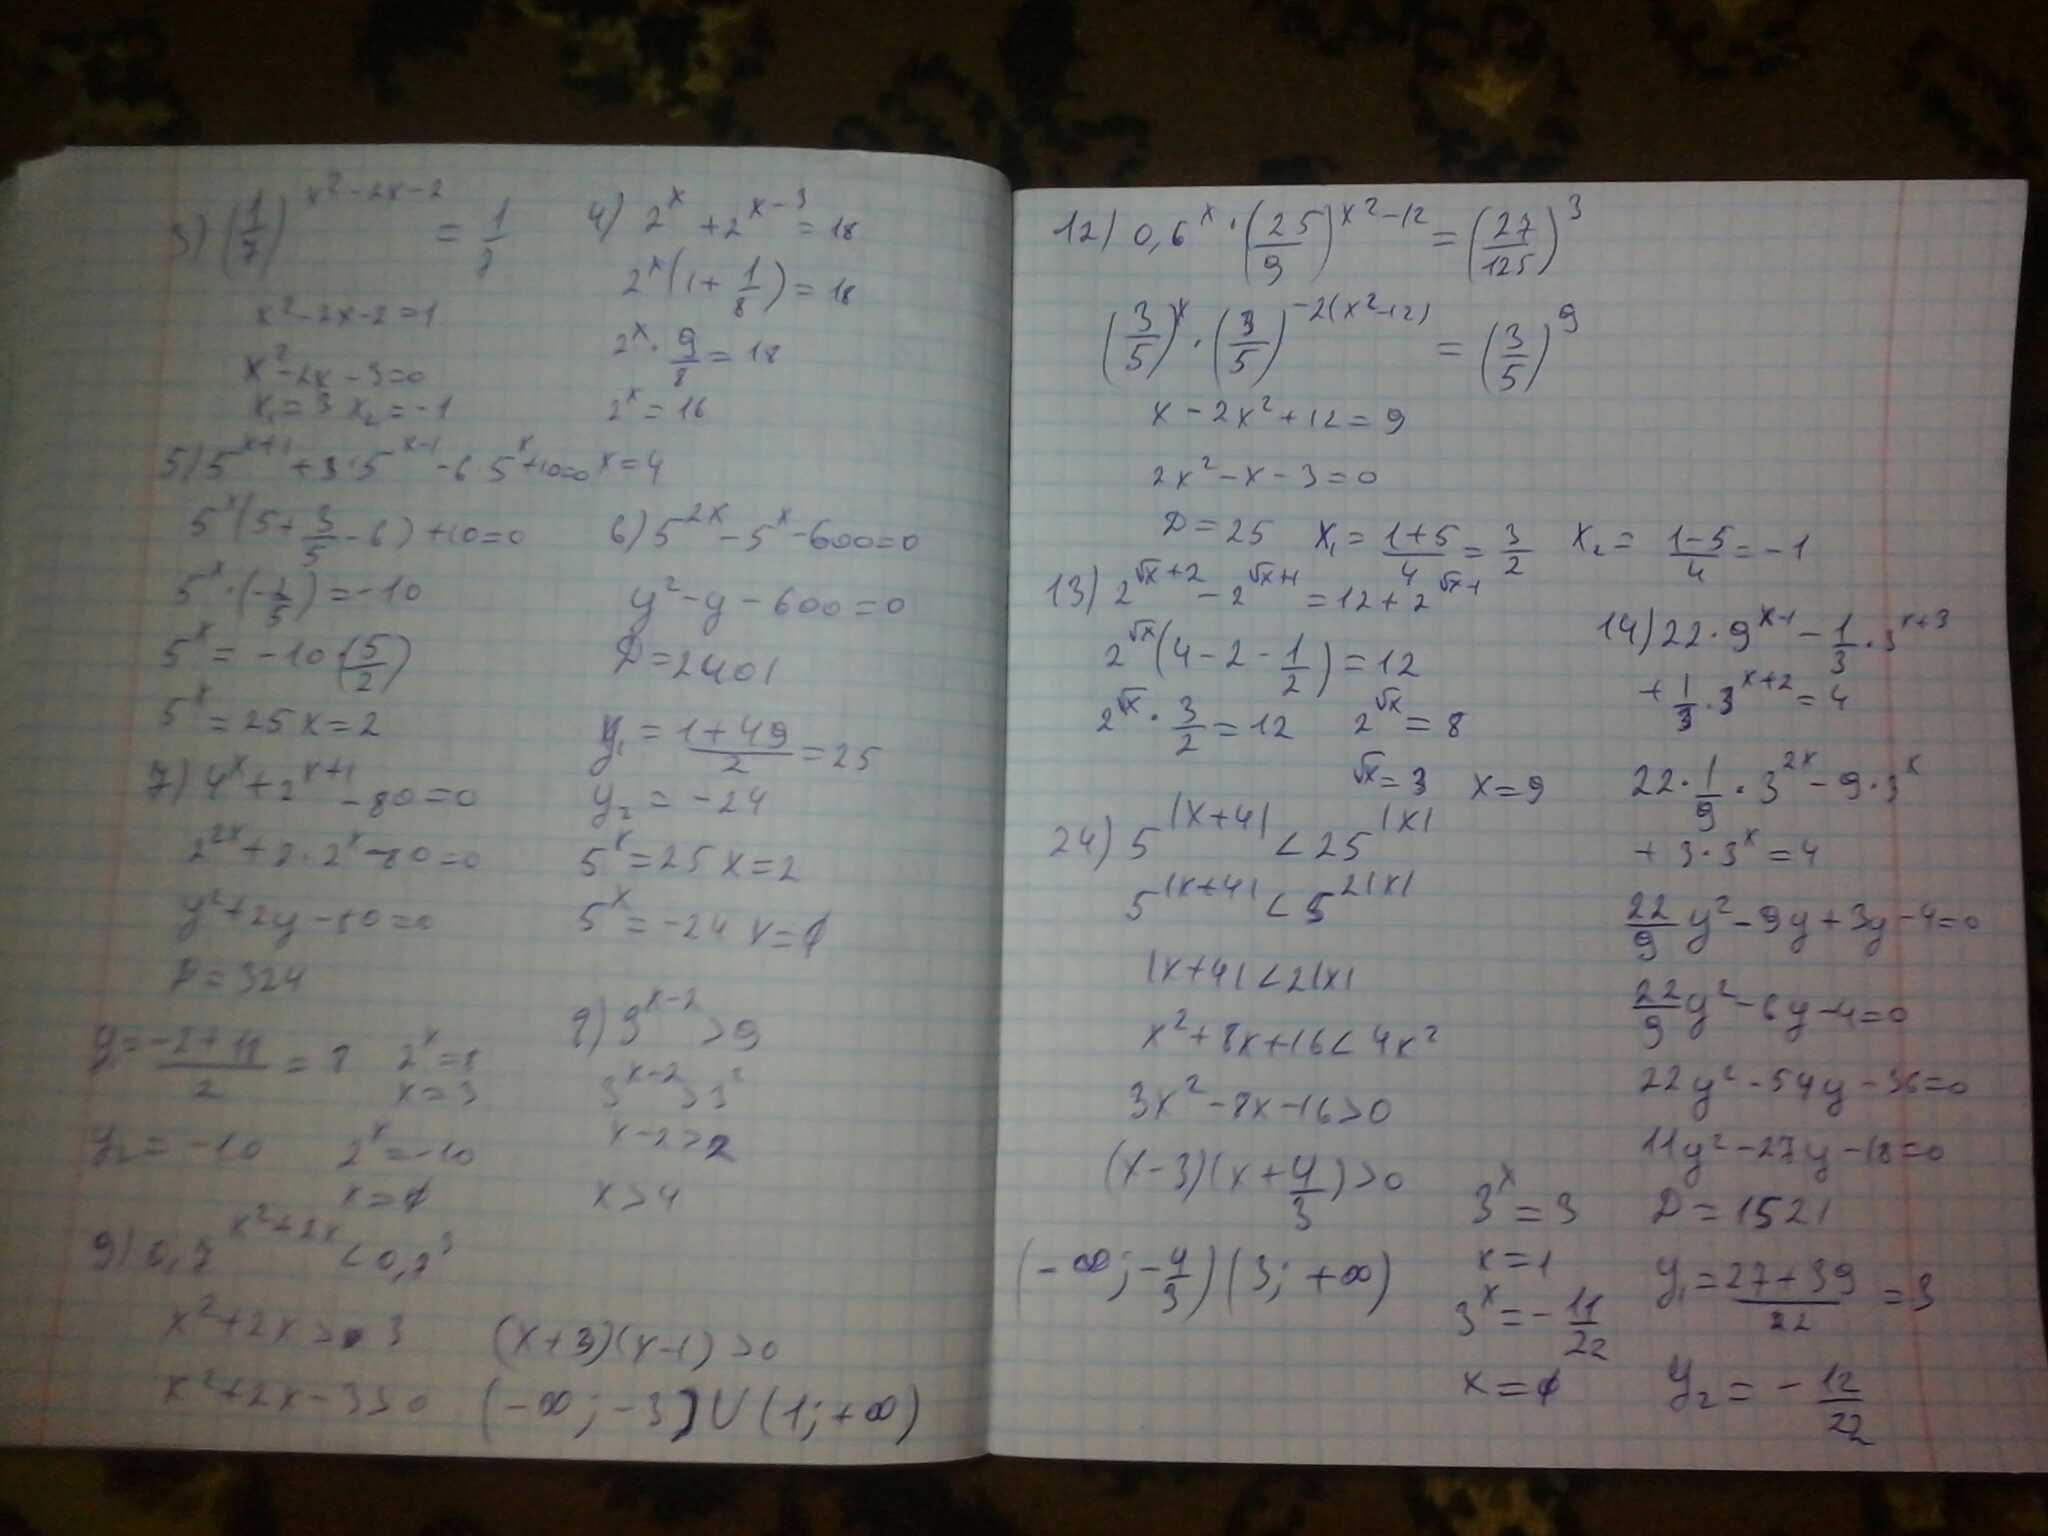 3) (1/7)^(x²-2x-2) = 1/7
x²-2x-2=1
x²-2x-3=0
x₁=3 x₂=-1
4) 2^x + 2^(x-3) = 18
2^x(1+1/8) = 18
2^x · 9/8 = 18
2^x = 16
x=4
5) 5^(x+1) + 3·5^(x-1) - 6 5^x + 10 = 0
5^x(5+3/5-6) + 10 = 0
5^x · (-2/5) = -10
5^x = -10 · (5/2)
5^x = 25 x=2
6) 5^(2x) - 5^x - 600 = 0
y² - y - 600 = 0
D = 2401
y₁ = (1+49)/2 = 25
y₂ = -24
5^x = 25 x=2
5^x = -24 x=∅
7) 4^x + 2^(x+1) - 80 = 0
2^(2x) + 2·2^x - 80 = 0
y² + 2y - 80 = 0
D = 324
y = (-2+18)/2 = 8 2^x = 8
x = 3
y₂ = -10 2^x = -10
x = ∅
8) 3^(x-2) > 9
3^(x-2) > 3²
x-2 > 2
x > 4
9) 0,7^(x²+2x) < 0,7³
x²+2x > 3
x²+2x-3>0
(x+3)(x-1) > 0
(-∞; -3) ∪ (1; +∞)
12) 0,6^x · (25/9)^(x²-12) = (27/125)³
(3/5)^x · (3/5)^(-2(x²-12)) = (3/5)^9
x - 2x² + 12 = 9
2x² - x - 3 = 0
D = 25 x₁ = (1+5)/4 = 3/2 x₂ = (1-5)/4 = -1
13) 2^(√x+2) - 2^(√x+1) = 12 + 2^(√x-1)
2^√x(4-2-1/2) = 12
2^√x · 3/2 = 12 2^√x = 8
√x = 3 x = 9
24) 5^|x+4| < 25^|x|
5^|x+4| < 5^2|x|
|x+4| < 2|x|
x²+8x+16 < 4x²
3x²-8x-16 > 0
(x-3)(x+4/3) > 0
(-∞; -4/3) (3; +∞)
14) 22·9^(x-1) - 1/3 · 3^(x+3)
+ 1/3 · 3^(x+2) = 4
22 · 1/9 · 3^(2x) - 9·3^x
+ 3·3^x = 4
22/9 y² - 9y + 3y - 4 = 0
22/9 y² - 6y - 4 = 0
22y² - 54y - 36 = 0
11y² - 27y - 18 = 0
D = 1521
y₁ = (27+39)/22 = 3
y₂ = -12/22
3^x = 3
x = 1
3^x = -11/22
x = ∅